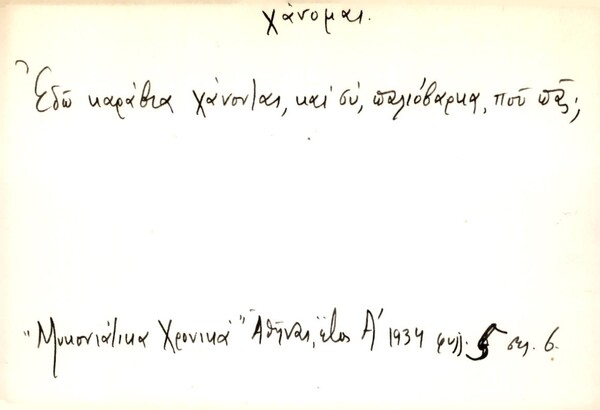 χάνομαι.
Ἐδῶ καράβια χάνονται, καὶ σύ, παλιόβαρκα, ποῦ πᾶς;
"Μυκονιάτικα Χρονικά" Ἀθῆναι, ἔτος Α' 1934 φυλλ. 5 σελ. 6.